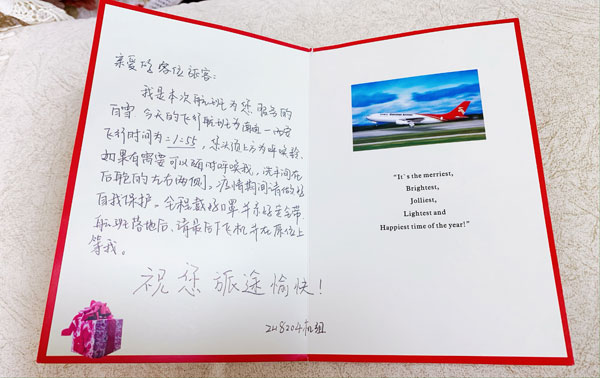 亲爱的各位旅客:
我是本次航班为您服务的
百雪 今天的飞行航班为南通一西安
飞行时间为:1:55,您头顶上方为呼唤铃
如果有需要可以随时呼唤我,洗手间在
后舱的左右两侧,疫情期间请做好
自我保护。全程戴好口罩并系好安全带
航班落地后、请最后下飞机并在座位上
等我。
祝您旅途愉快!
ZH8204机组
"It's the merriest,
Brightest,
Jolliest,
Lightest and
Happiest time of the year!"